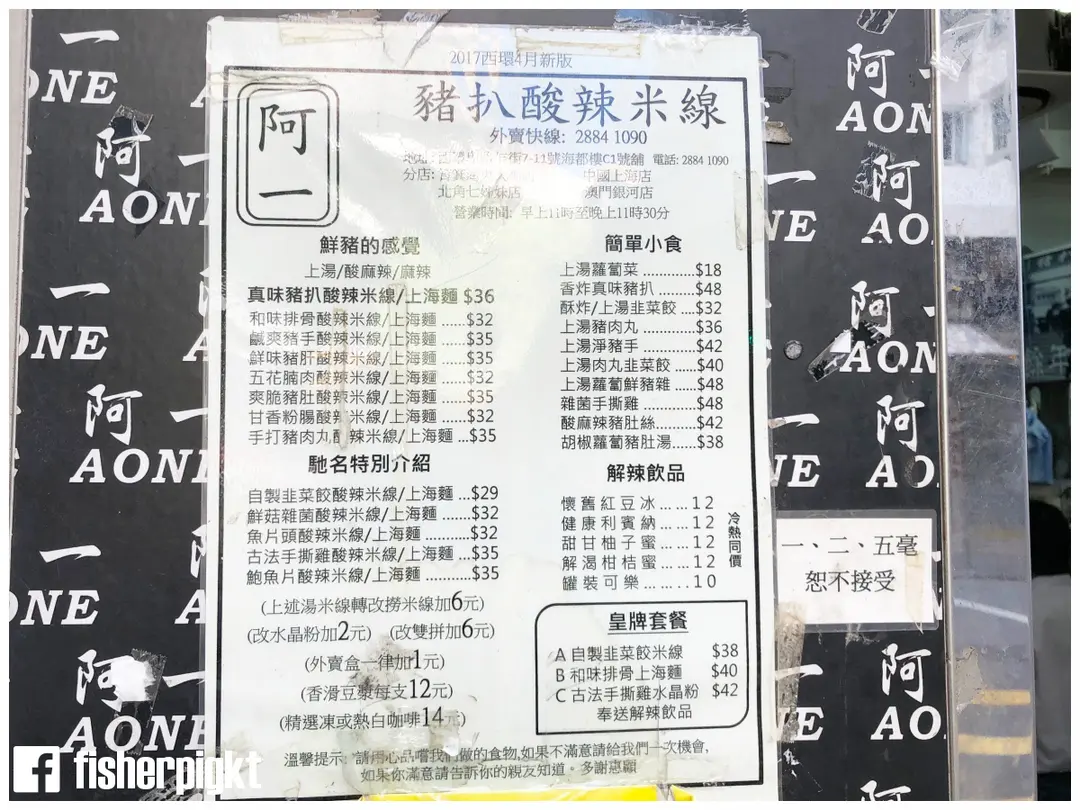 2017西環4月新版
阿一
豬扒酸辣米線
外賣快線: 2884 1090
街7-11號海都樓C1號舖 電話: 2884 1090
分店: 中國上海店
北角七姊妹店 澳門銀河店
營業時間: 早上11時至晚上11時30分
鮮豬的感覺
上湯/酸麻辣/麻辣
真味豬扒酸辣米線/上海麵 $36
和味排骨酸辣米線/上海麵 ......$32
鹹爽豬手酸辣米線/上海麵 ......$35
鮮味豬肝酸辣米線/上海麵 ......$35
五花腩肉酸辣米線/上海麵 ......$32
爽脆豬肚酸辣米線/上海麵 ......$35
甘香粉腸酸辣米線/上海麵 ......$32
手打豬肉丸酸辣米線/上海麵 ...$35
馳名特別介紹
自製韭菜餃酸辣米線/上海麵 ...$29
鮮菇雜菌酸辣米線/上海麵 ......$32
魚片頭酸辣米線/上海麵 ..........$32
古法手撕雞酸辣米線/上海麵 ...$35
鮑魚片酸辣米線/上海麵 ..........$35
(上述湯米線轉改撈米線加6元)
(改水晶粉加2元) (改雙拼加6元)
(外賣盒一律加1元)
(香滑豆漿每支12元)
(精選凍或熱白咖啡14元)
簡單小食
上湯蘿蔔菜 ............$18
香炸真味豬扒 .........$48
酥炸/上湯韭菜餃 ...$32
上湯豬肉丸 ............$36
上湯淨豬手 ............$42
上湯肉丸韭菜餃 .....$40
上湯蘿蔔鮮豬雜 .....$48
雜菌手撕雞 ............$48
酸麻辣豬肚絲.........$42
胡椒蘿蔔豬肚湯.....$38
解辣飲品
懷舊紅豆冰......12
健康利賓納......12
甜甘柚子蜜......12
解渴柑桔蜜......12
罐裝可樂........10
冷熱同價
皇牌套餐
A 自製韭菜餃米線 $38
B 和味排骨上海麵 $40
C 古法手撕雞水晶粉 $42
奉送解辣飲品
溫馨提示: 請用心品嚐我們做的食物,如果不滿意請給我們一次機會,
如果你滿意請告訴你的親友知道。多謝惠顧
一、二、五毫
恕不接受
阿一
AONE
阿一
AONE
阿一
AONE
fisherpigkt